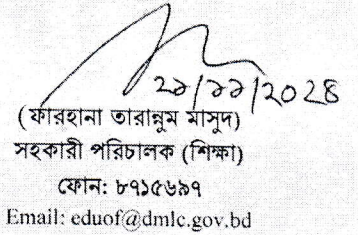 ২১/১১/২০২৪
(ফারহানা তারান্নুম মাসুদ)
সহকারী পরিচালক (শিক্ষা)
ফোন: ৮৭১৫৬৯৭
Email: eduof@dmlc.gov.bd